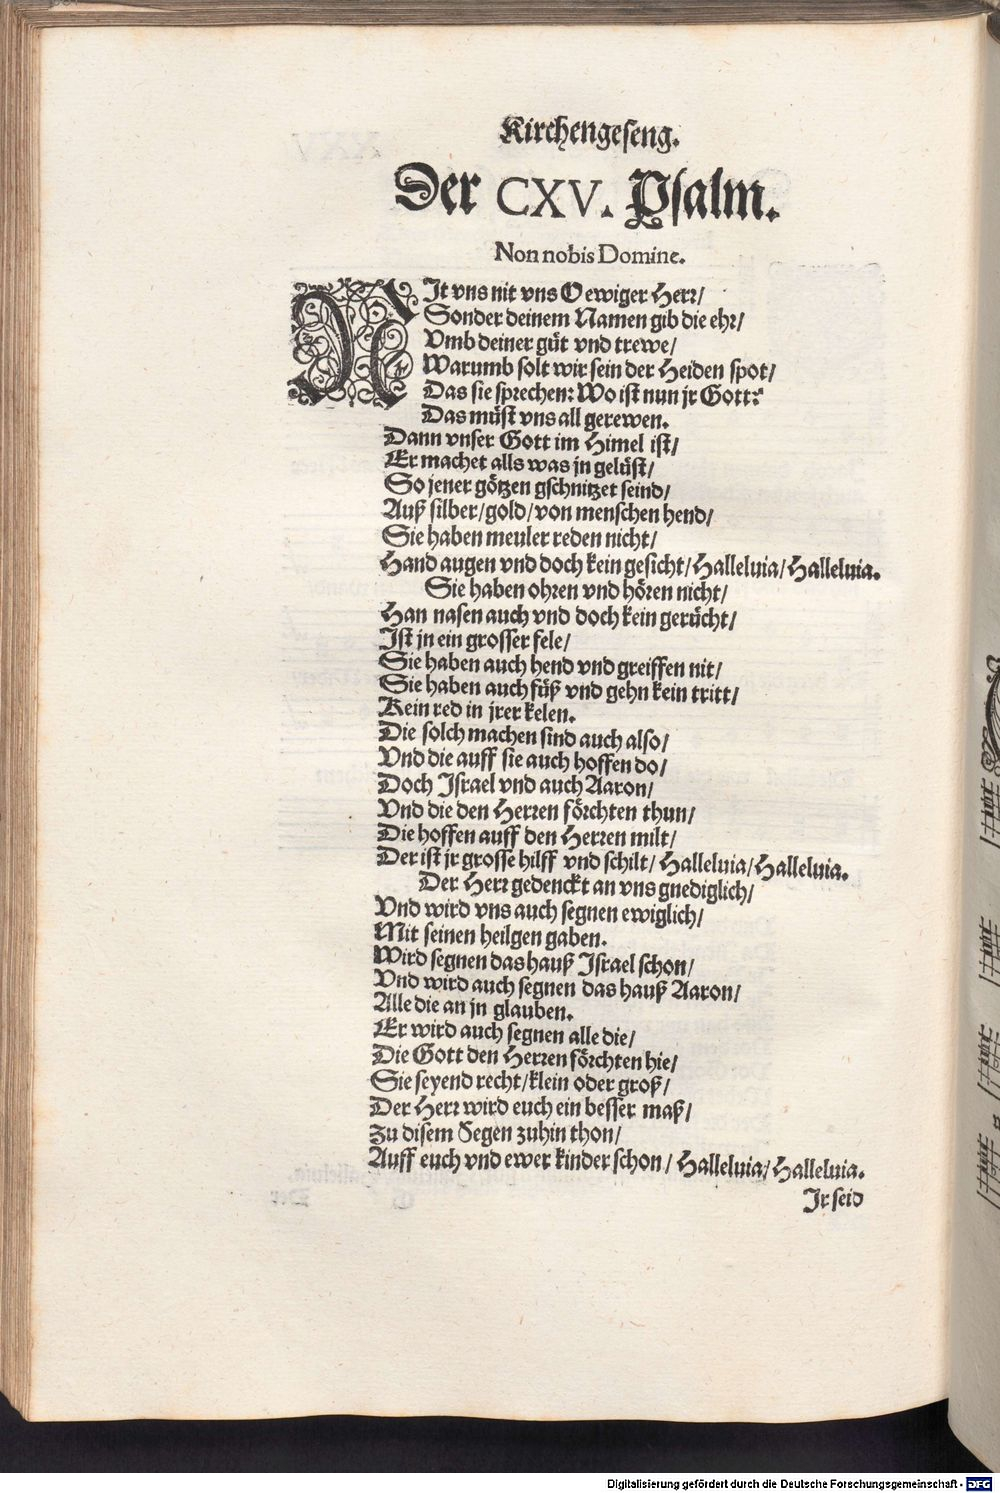 Kirchengeseng.
Der CXV. Psalm.
Non nobis Domine.
NIt vns nit vns O ewiger Herr/
Sonder deinem Namen gib die ehr/
Vmb deiner güt vnd trewe/
Warumb solt wir sein der Heiden spot/
Das sie sprechen: Wo ist nun jr Gott?
Das müst vns all gerewen.
Dann vnser Gott im Himel ist/
Er machet alls was jn gelüst/
So jener götzen gschnitzet seind/
Auß silber/gold/von menschen hend/
Sie haben meuler reden nicht/
Hand augen vnd doch kein gesicht/Halleluia/Halleluia.
Sie haben ohren vnd hören nicht/
Han nasen auch vnd doch kein gerücht/
Ist jn ein grosser fele/
Sie haben auch hend vnd greiffen nit/
Sie haben auch füß vnd gehn kein tritt/
Kein red in jrer kelen.
Die solch machen sind auch also/
Vnd die auff sie auch hoffen do/
Doch Israel vnd auch Aaron/
Vnd die den Herren förchten thun/
Die hoffen auff den Herren milt/
Der ist jr grosse hilff vnd schilt/Halleluia/Halleluia.
Der Herr gedenckt an vns gnediglich/
Vnd wird vns auch segnen ewiglich/
Mit seinen heilgen gaben.
Wird segnen das hauß Israel schon/
Vnd wird auch segnen das hauß Aaron/
Alle die an jn glauben.
Er wird auch segnen alle die/
Die Gott den Herren förchten hie/
Sie seyend recht/klein oder groß/
Der Herr wird euch ein besser maß/
Zu disem Segen zuhin thon/
Auff euch vnd ewer kinder schon/Halleluia/Halleluia.
Jr seid
Digitalisierung gefördert durch die Deutsche Forschungsgemeinschaft - DFG